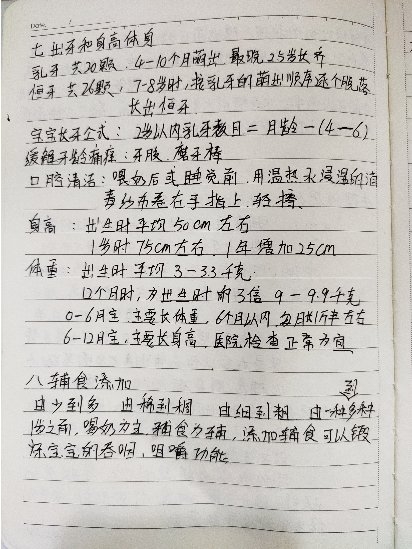 七 出牙和身高体身
乳牙 共20颗 4-10个月萌出 最晚2.5岁长齐
恒牙 共26颗 7-8岁时,按乳牙的萌出顺序逐个脱落
长出恒牙
宝宝长牙公式: 2岁以内乳牙数目=月龄-(4-6)
缓解牙龄痛痒: 牙胶 磨牙棒
口腔清洁: 喂奶后或睡觉前,用温热水浸湿的消
毒纱布卷在手指上,轻擦
身高: 出生时平均50cm左右
1岁时75cm左右,1年增加25cm
体重: 出生时平均3-3.3千克
12个月时,为出生时的3倍 9-9.9千克
0-6月宝:主要长体重,6个月以内,每月长1斤半左右
6-12月宝:主要长身高,医院检查正常方向
八 辅食添加
由少到多 由稀到稠 由细到粗 由一种到多种
1岁之前,喂奶为主 辅食为辅,添加辅食可以锻
炼宝宝的吞咽,咀嚼功能